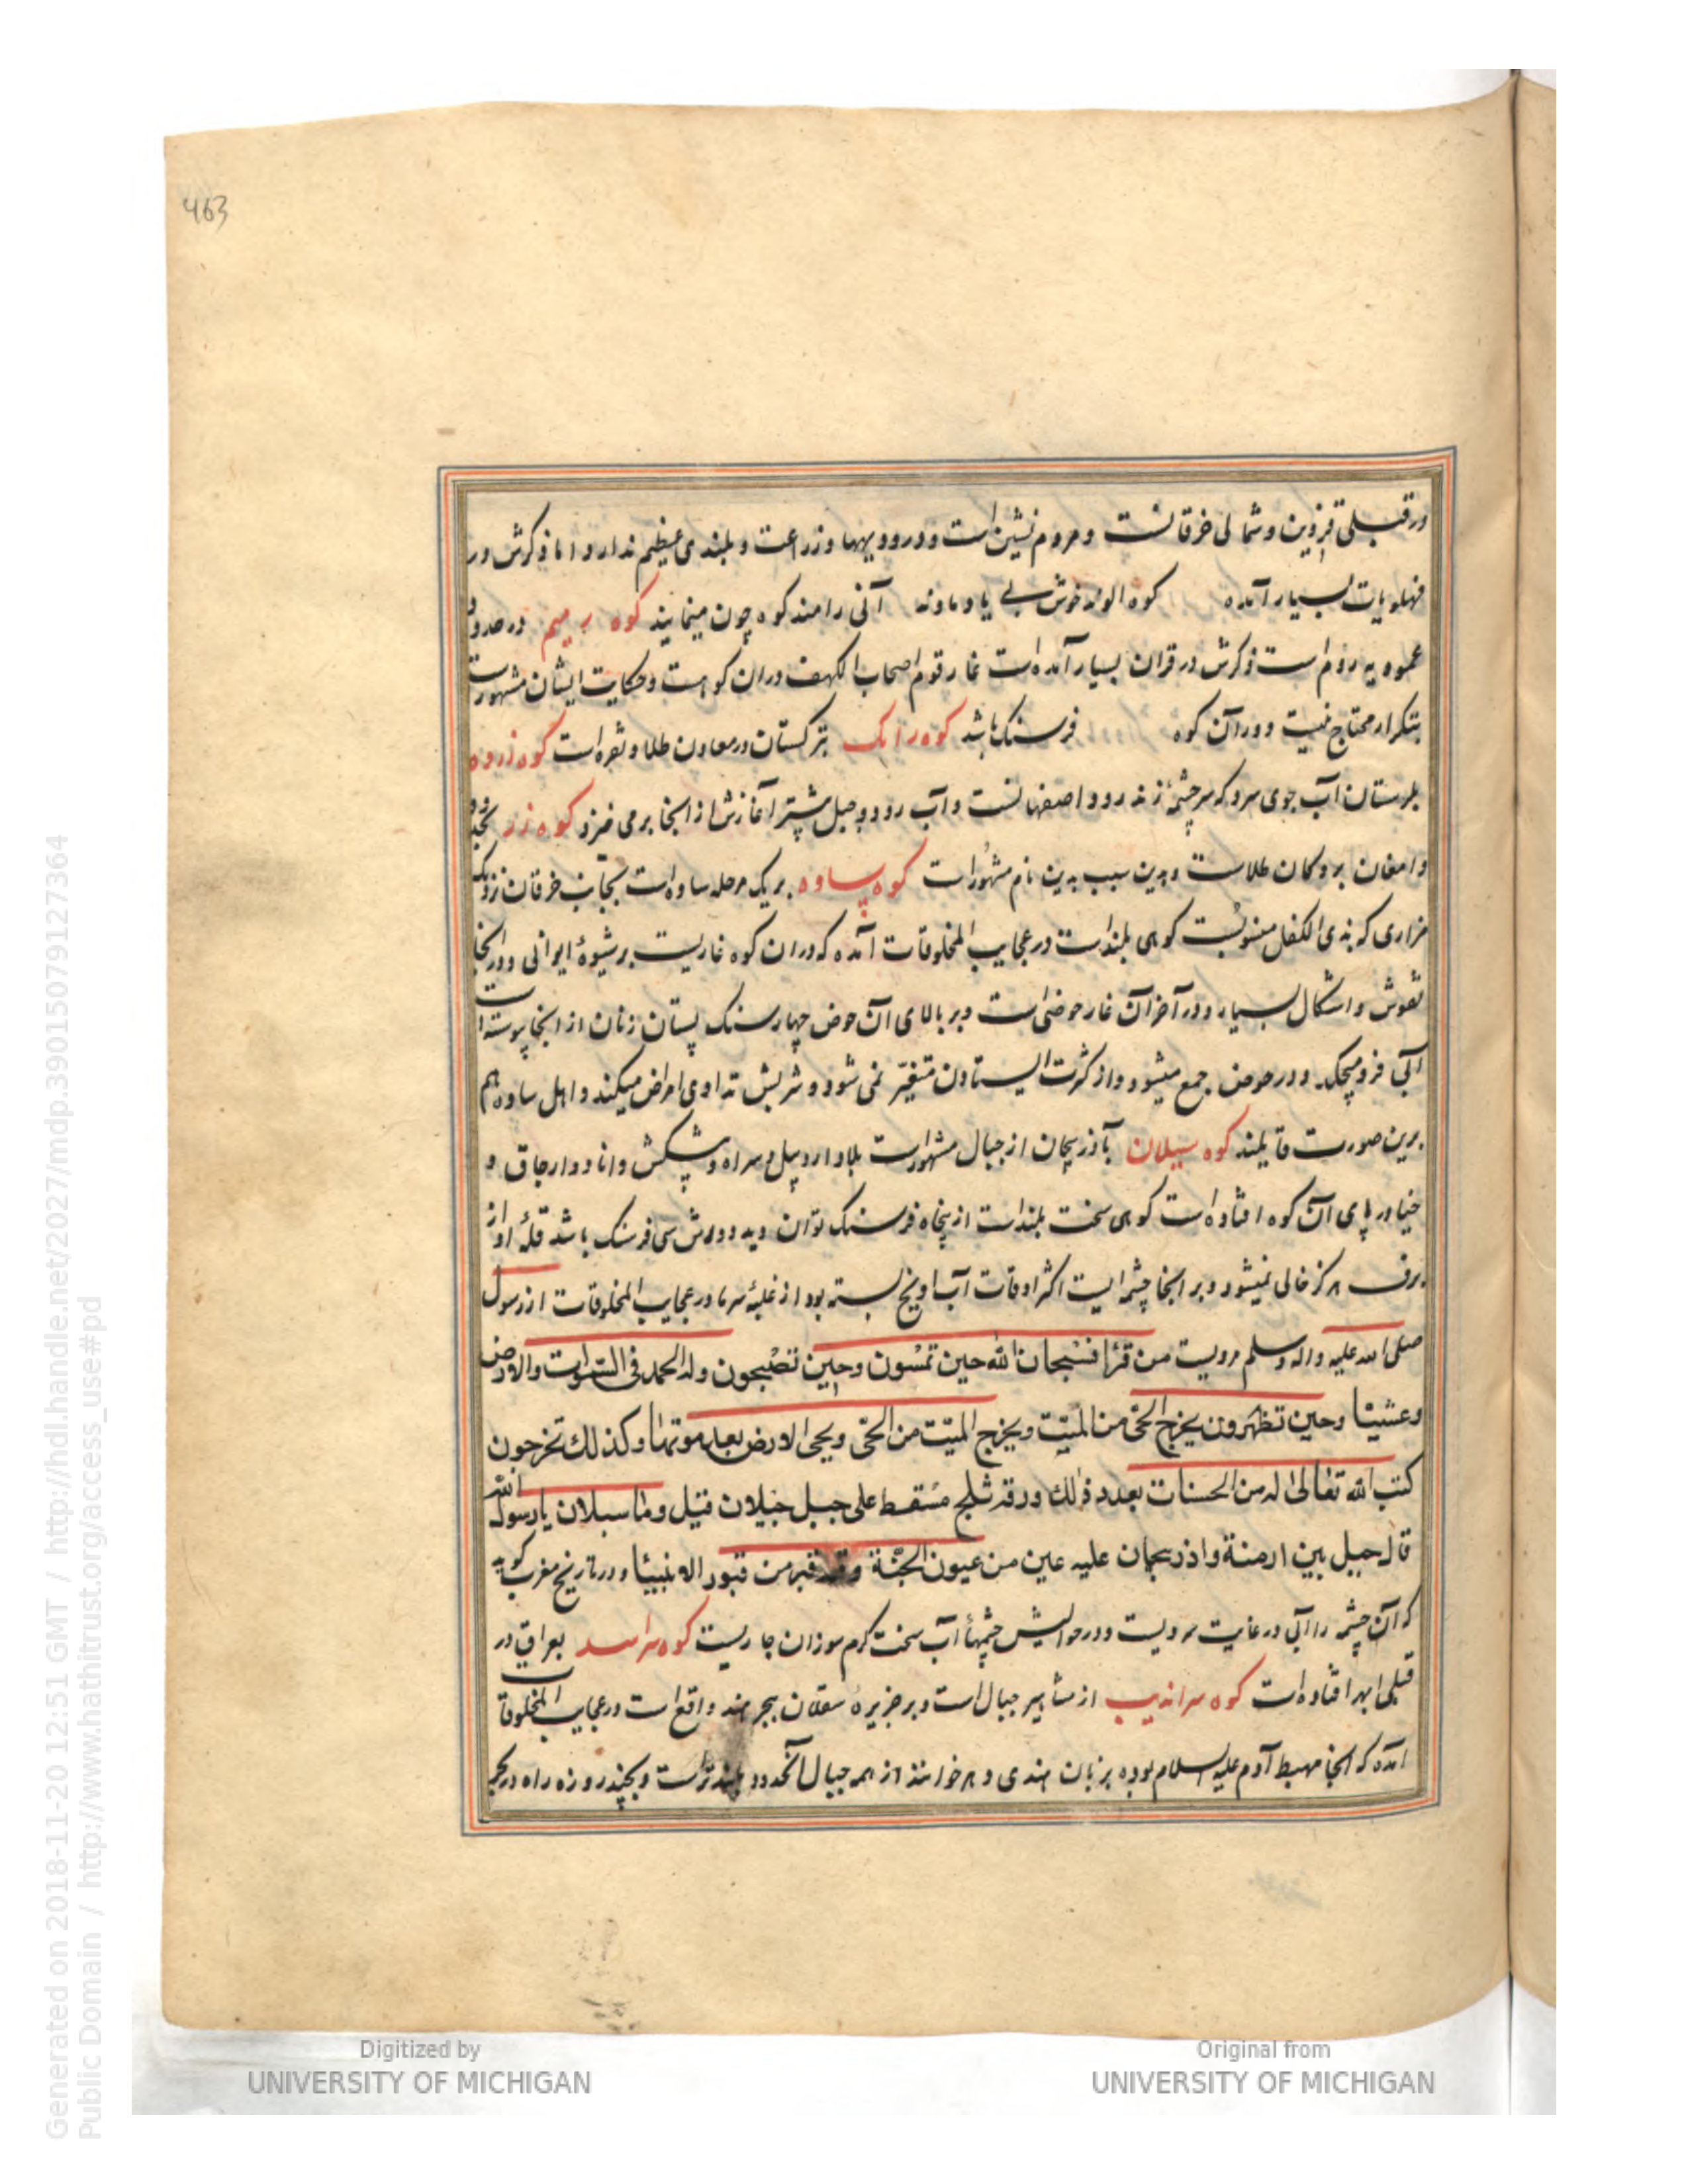 463
در قبلی قزوین و شمالی خرقانست و مردم نشین است و درو دیهها و زراعت و بلندی عظیم ندارد اما ذکرش در
فهلویات بسیار آمده کوه الوند خوش آنی را مند کوه چون مینمایند کوه برمیم در حدود
عموریه روم است ذکرش در قران بسیار آمده است غار قوم اصحاب الکهف دران کوهست و حکایت ایشان مشهورست
بتکرار محتاج نیست و دور آن کوه فرسنک باشد کوه رانک بترکستان درمعادن طلا و نقره است کوه زرده
بلرستان آب جوی سرد که سرچشمه زنده رود اصفهانست و آب رود دجیل شتر آغازش از انجا برمی خیزد کوه زر بحدود
دامغان برو کان طلاست و بدین سبب بدین نام مشهورست کوه ساوه بر یک مرحله ساوه است بجانب خرقان نزدیک
مزاری که بذی الکفل منسوبست کوهی بلندست در عجایب المخلوقات آمده که دران کوه غاریست بر شیوه ایوانی و در انجا
نقوش و اشکال بسیار و در آخر آن غار حوضی است و بر بالای آن حوض چهار سنک پستان زنان از انجا پیوسته
آبی فرو میچکد و در حوض جمع میشود و از کثرت ایستادن متغیر نمی شود و شربش تداوی امراض میکند و اهل ساوه هم
برین صورت قایلند کوه سبلان بآذربیجان از جبال مشهورست بلاد اردبیل و سراه و پیشکین و اناد و ارجاق و
خیاو در پای آن کوه افتاده است کوهی سخت بلندست از پنجاه فرسنک توان دید و دورش سی فرسنک باشد قله او از
برف هرکز خالی نمیشود و بر انجا چشمه ایست اکثر اوقات آب او یخ بسته بود از غلبه سرما در عجایب المخلوقات از رسول
صلی الله علیه واله وسلم مرویست من قرا فسبحان الله حین تمسون وحین تصبحون وله الحمد فی السموات والارض
وعشیا وحین تظهرون یخرج الحی من المیت ویخرج المیت من الحی ویحی الارض بعد موتها وکذلک تخرجون
کتب الله تعالی له من الحسنات بعدد ذلک ورقه ثلج مسقط علی جبل جیلان قیل وما سبلان یا رسول الله
قال جبل بین ارمنة واذربیجان علیه عین من عیون الجنة وفیه قبر من قبور الانبیا و در تاریخ مغرب کوید
که آن چشمه را آبی در غایت سردیست و در حوالیش چشمهاء آب سخت کرم سوزان جاریست کوه سراهند بعراق در
قبلی ابهر افتاده است کوه سراندیب از مشاهیر جبال است و بر جزیره سقلان ببحر هند واقع است در عجایب المخلوقات
آمده که انجا مهبط آدم علیه السلام بوده بزبان هندی و هر خوانند از همه جبال آنحدود بلندترست و بچند روزه راه در بحر
Digitized by
UNIVERSITY OF MICHIGAN
Original from
UNIVERSITY OF MICHIGAN
Generated on 2018-11-20 12:51 GMT / http://hdl.handle.net/2027/mdp.39015079127364
Public Domain / http://www.hathitrust.org/access_use#pd